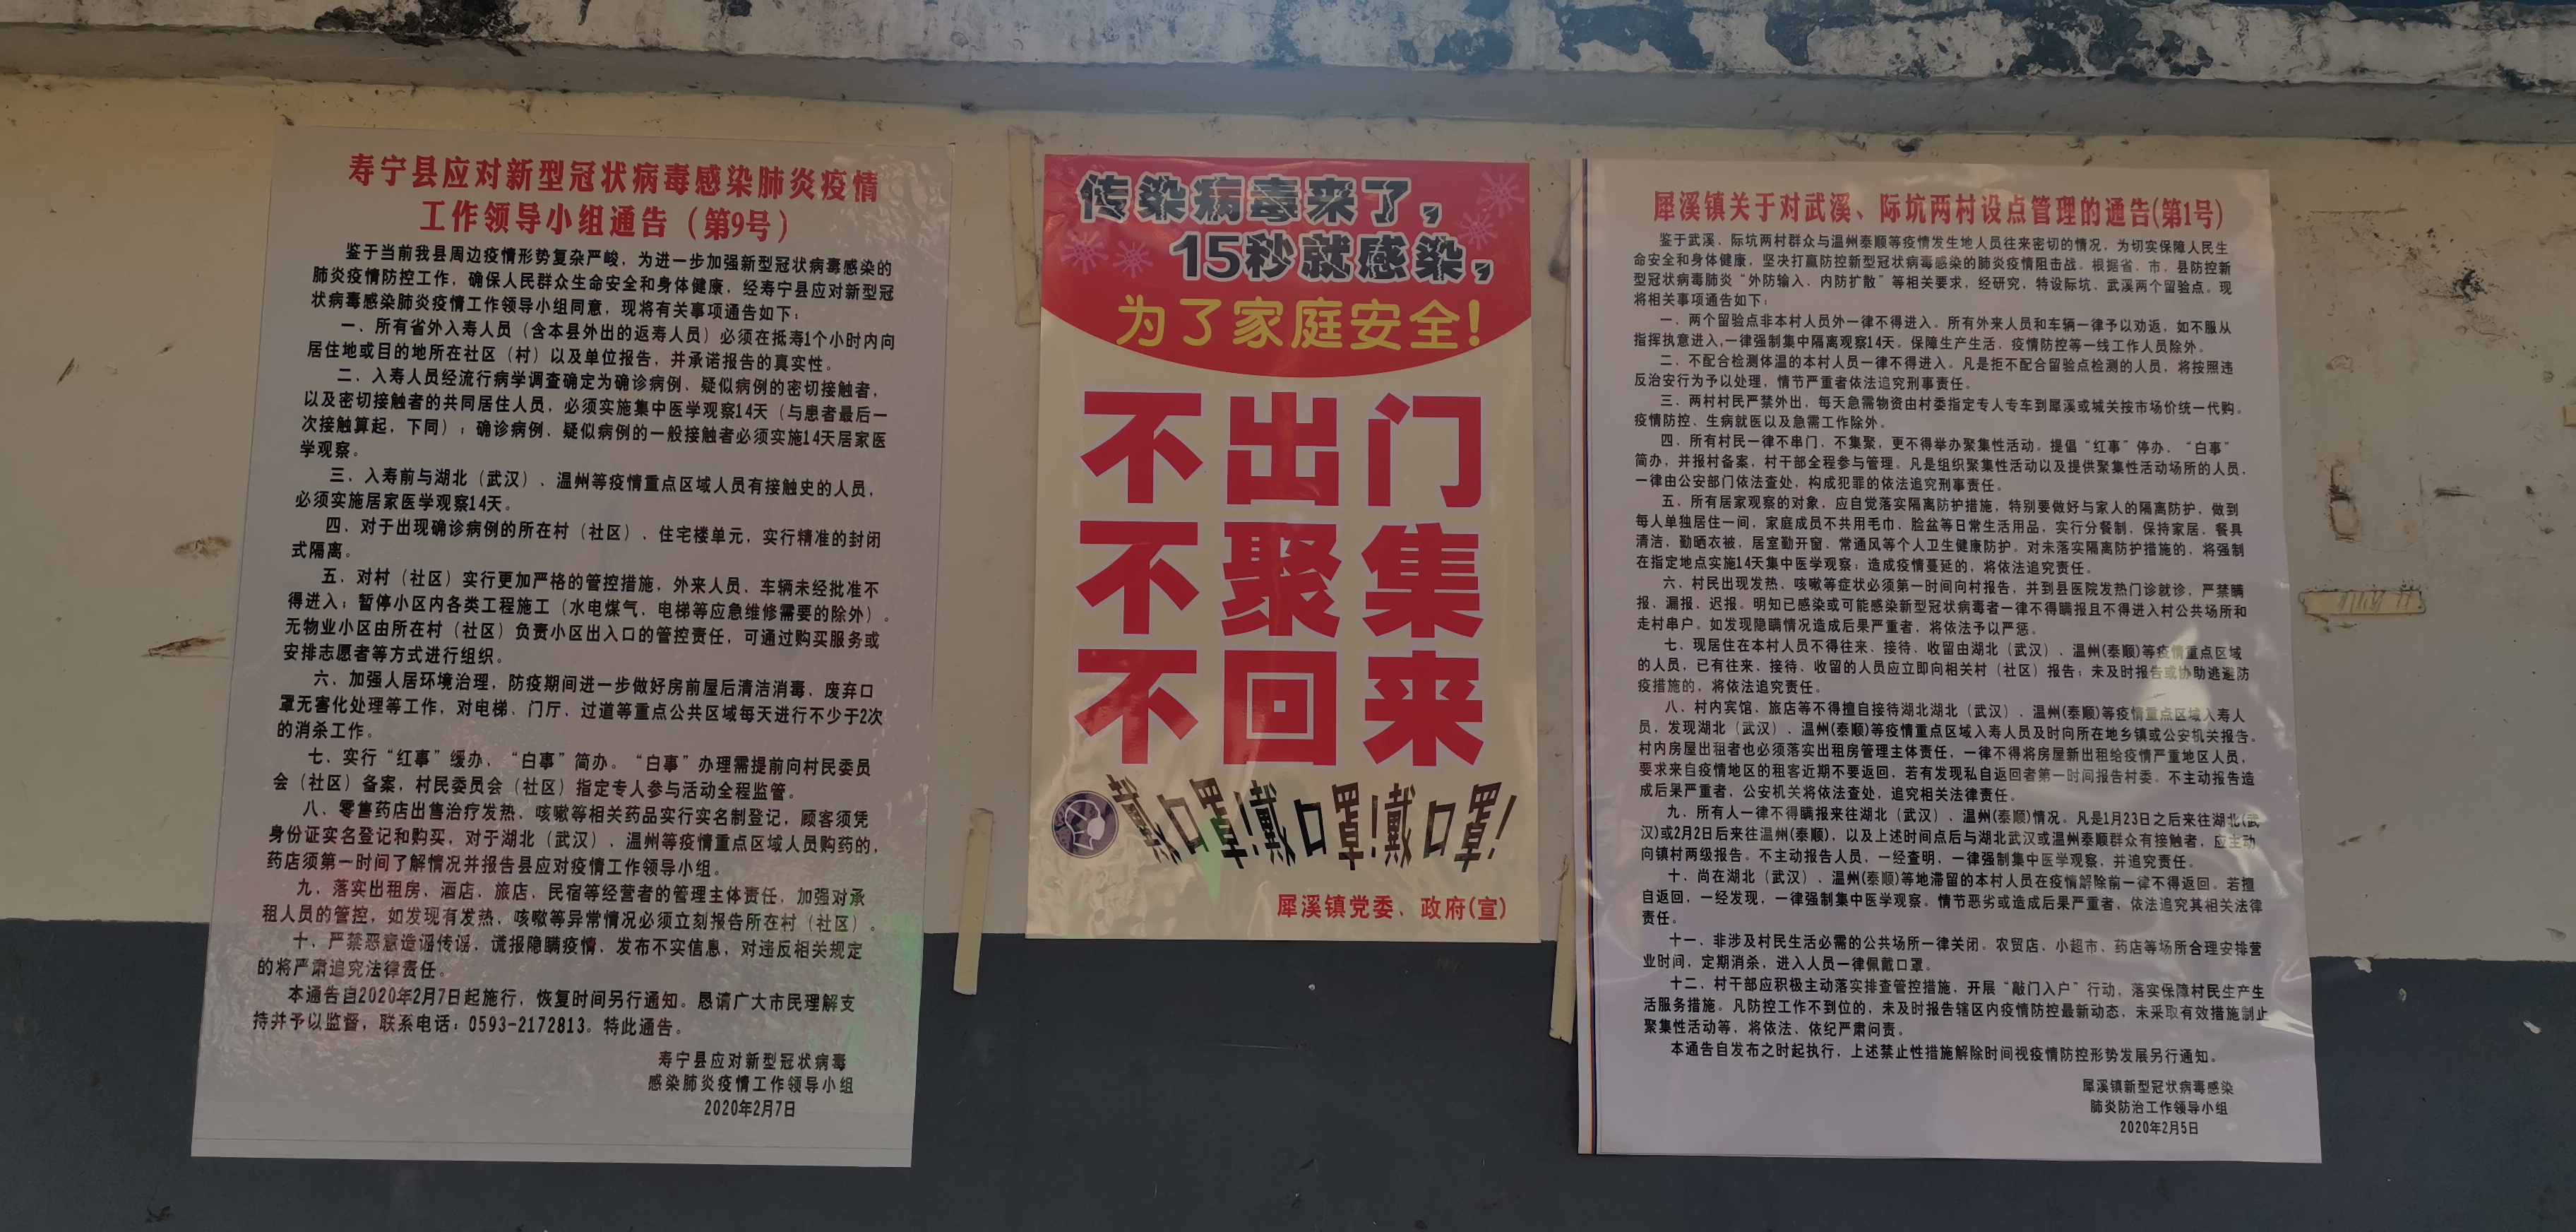 寿宁县应对新型冠状病毒感染肺炎疫情
工作领导小组通告（第9号）
鉴于当前我县周边疫情形势复杂严峻，为进一步加强新型冠状病毒感染的
肺炎疫情防控工作，确保人民群众生命安全和身体健康，经寿宁县应对新型冠
状病毒感染肺炎疫情工作领导小组同意，现将有关事项通告如下：
一、所有省外入寿人员（含本县外出的返寿人员）必须在抵寿1个小时内向
居住地或目的地所在社区（村）以及单位报告，并承诺报告的真实性。
二、入寿人员经流行病学调查确定为确诊病例、疑似病例的密切接触者，
以及密切接触者的共同居住人员，必须实施集中医学观察14天（与患者最后一
次接触算起，下同）；确诊病例、疑似病例的一般接触者必须实施14天居家医
学观察。
三、入寿前与湖北（武汉）、温州等疫情重点区域人员有接触史的人员，
必须实施居家医学观察14天。
四、对于出现确诊病例的所在村（社区）、住宅楼单元，实行精准的封闭
式隔离。
五、对村（社区）实行更加严格的管控措施，外来人员、车辆未经批准不
得进入；暂停小区内各类工程施工（水电煤气、电梯等应急维修需要的除外）。
无物业小区由所在村（社区）负责小区出入口的管控责任，可通过购买服务或
安排志愿者等方式进行组织。
六、加强人居环境治理，防疫期间进一步做好房前屋后清洁消毒、废弃口
罩无害化处理等工作，对电梯、门厅、过道等重点公共区域每天进行不少于2次
的消杀工作。
七、实行“红事”缓办、“白事”简办。“白事”办理需提前向村民委员
会（社区）备案，村民委员会（社区）指定专人参与活动全程监管。
八、零售药店出售治疗发热、咳嗽等相关药品实行实名制登记，顾客须凭
身份证实名登记和购买，对于湖北（武汉）、温州等疫情重点区域人员购药的，
药店须第一时间了解情况并报告县应对疫情工作领导小组。
九、落实出租房、酒店、旅店、民宿等经营者的管理主体责任，加强对承
租人员的管控，如发现有发热、咳嗽等异常情况必须立刻报告所在村（社区）。
十、严禁恶意造谣传谣、谎报隐瞒疫情、发布不实信息，对违反相关规定
的将严肃追究法律责任。
本通告自2020年2月7日起施行，恢复时间另行通知。恳请广大市民理解支
持并予以监督，联系电话：0593-2172813。特此通告。
寿宁县应对新型冠状病毒
感染肺炎疫情工作领导小组
2020年2月7日
传染病毒来了，
15秒就感染，
为了家庭安全！
不出门
不聚集
不回来
戴口罩！戴口罩！戴口罩！
犀溪镇党委、政府(宣)
犀溪镇关于对武溪、际坑两村设点管理的通告(第1号)
鉴于武溪、际坑两村群众与温州泰顺等疫情发生地人员往来密切的情况，为切实保障人民生
命安全和身体健康，坚决打赢防控新型冠状病毒感染的肺炎疫情阻击战。根据省、市、县防控新
型冠状病毒肺炎“外防输入、内防扩散”等相关要求，经研究，特设际坑、武溪两个留验点。现
将相关事项通告如下：
一、两个留验点非本村人员外一律不得进入。所有外来人员和车辆一律予以劝返，如不服从
指挥执意进入,一律强制集中隔离观察14天。保障生产生活，疫情防控等一线工作人员除外。
二、不配合检测体温的本村人员一律不得进入。凡是拒不配合留验点检测的人员，将按照违
反治安行为予以处理，情节严重者依法追究刑事责任。
三、两村村民严禁外出，每天急需物资由村委指定专人专车到犀溪或城关按市场价统一代购。
疫情防控、生病就医以及急需工作除外。
四、所有村民一律不串门、不集聚，更不得举办聚集性活动。提倡“红事”停办、“白事”
简办，并报村备案，村干部全程参与管理。凡是组织聚集性活动以及提供聚集性活动场所的人员，
一律由公安部门依法查处，构成犯罪的依法追究刑事责任。
五、所有居家观察的对象，应自觉落实隔离防护措施，特别要做好与家人的隔离防护，做到
每人单独居住一间，家庭成员不共用毛巾、脸盆等日常生活用品，实行分餐制，保持家居、餐具
清洁，勤晒衣被，居室勤开窗、常通风等个人卫生健康防护。对未落实隔离防护措施的，将强制
在指定地点实施14天集中医学观察；造成疫情蔓延的，将依法追究责任。
六、村民出现发热、咳嗽等症状必须第一时间向村报告，并到县医院发热门诊就诊，严禁瞒
报、漏报、迟报。明知已感染或可能感染新型冠状病毒者一律不得瞒报且不得进入村公共场所和
走村串户。如发现隐瞒情况造成后果严重者，将依法予以严惩。
七、现居住在本村人员不得往来、接待、收留由湖北（武汉）、温州(泰顺)等疫情重点区域
的人员，已有往来、接待、收留的人员应立即向相关村（社区）报告；未及时报告或协助逃避防
疫措施的，将依法追究责任。
八、村内宾馆、旅店等不得擅自接待湖北湖北（武汉）、温州(泰顺)等疫情重点区域入寿人
员，发现湖北（武汉）、温州(泰顺)等疫情重点区域入寿人员及时向所在地乡镇或公安机关报告。
村内房屋出租者也必须落实出租房管理主体责任，一律不得将房屋新出租给疫情严重地区人员，
要求来自疫情地区的租客近期不要返回，若有发现私自返回者第一时间报告村委。不主动报告造
成后果严重者，公安机关将依法查处，追究相关法律责任。
九、所有人一律不得瞒报来往湖北（武汉）、温州(泰顺)情况。凡是1月23日之后来往湖北(武
汉)或2月2日后来往温州(泰顺)，以及上述时间点后与湖北武汉或温州泰顺群众有接触者，应主动
向镇村两级报告。不主动报告人员，一经查明，一律强制集中医学观察，并追究责任。
十、尚在湖北（武汉）、温州(泰顺)等地滞留的本村人员在疫情解除前一律不得返回。若擅
自返回，一经发现，一律强制集中医学观察。情节恶劣或造成后果严重者，依法追究其相关法律
责任。
十一、非涉及村民生活必需的公共场所一律关闭。农贸店、小超市、药店等场所合理安排营
业时间，定期消杀，进入人员一律佩戴口罩。
十二、村干部应积极主动落实排查管控措施，开展“敲门入户”行动，落实保障村民生产生
活服务措施。凡防控工作不到位的，未及时报告辖区内疫情防控最新动态，未采取有效措施制止
聚集性活动等，将依法、依纪严肃问责。
本通告自发布之时起执行，上述禁止性措施解除时间视疫情防控形势发展另行通知。
犀溪镇新型冠状病毒感染
肺炎防治工作领导小组
2020年2月5日